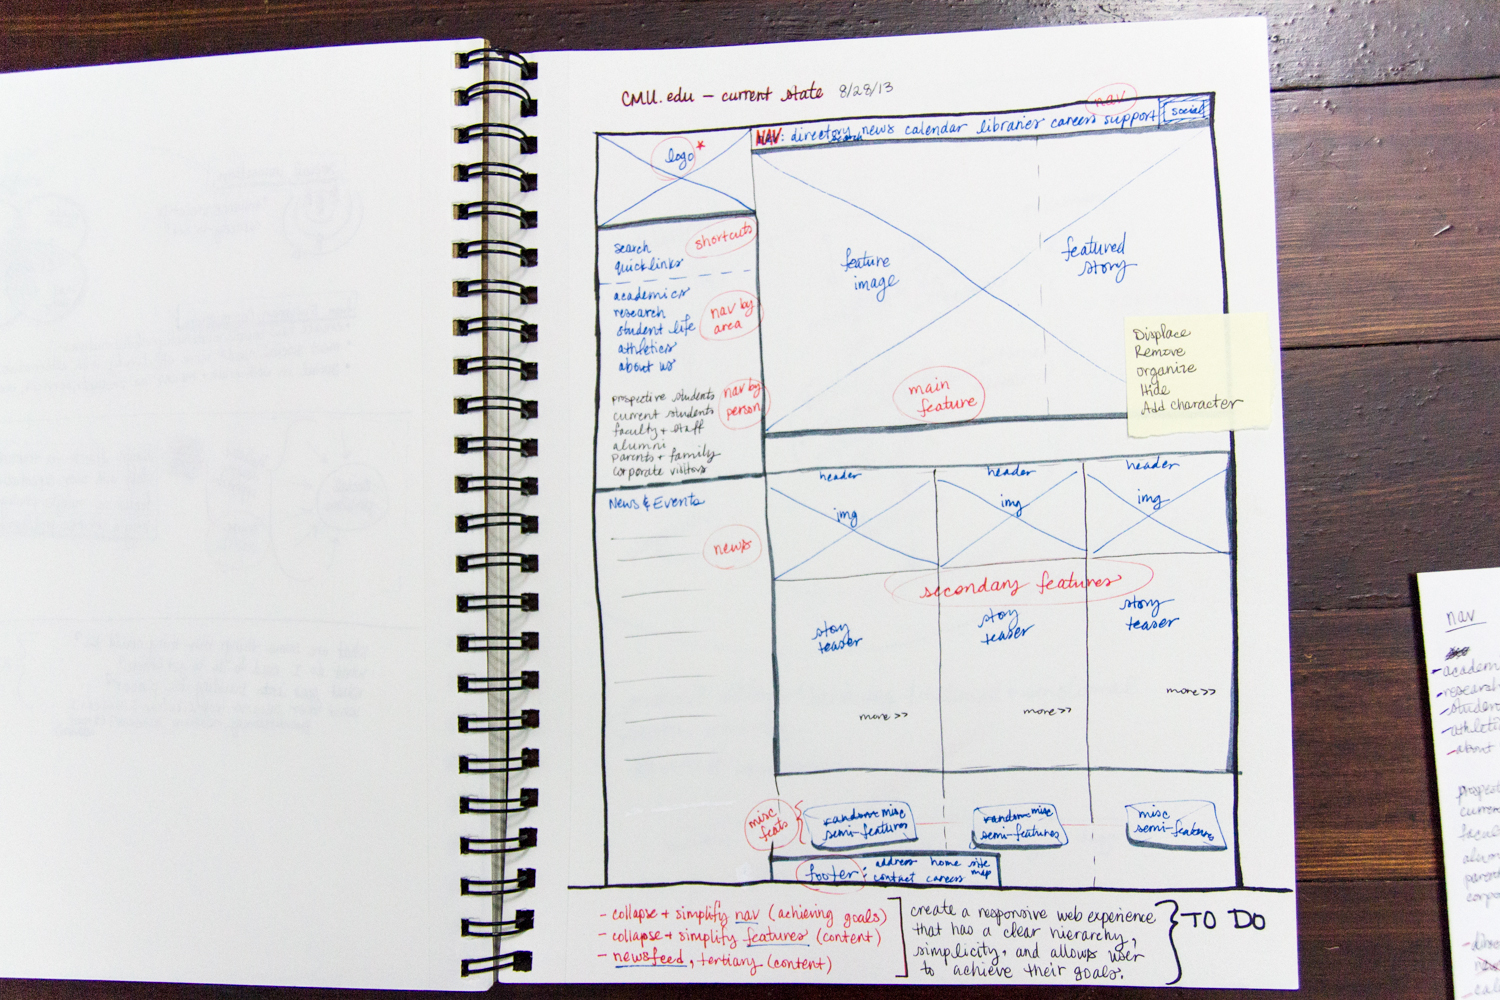 CMU.edu — current state 8/28/13
nav
NAV: directory news calendar libraries careers support
search
social
logo *
search
quicklinks
shortcuts
academics
research
student life
athletics
about us
nav by
area
prospective students
current students
faculty + staff
alumni
parents + family
corporate visitors
nav by
person
News & Events
news
feature
image
featured
story
main
feature
Displace
Remove
Organize
Hide
Add character
header
img
header
img
header
img
secondary features
story
teaser
more >>
story
teaser
more >>
story
teaser
more >>
misc
feats
random misc
semi-features
random misc
semi-features
misc
semi-features
footer: address home site
contact careers map
- collapse + simplify nav (achieving goals)
- collapse + simplify features (content)
- newsfeed, tertiary (content)
create a responsive web experience
that has a clear hierarchy,
simplicity, and allows user
to achieve their goals.
TO DO
nav
- academ
- research
- student
- athleti
- about
prospec
curren
facul
alum
paren
corpo